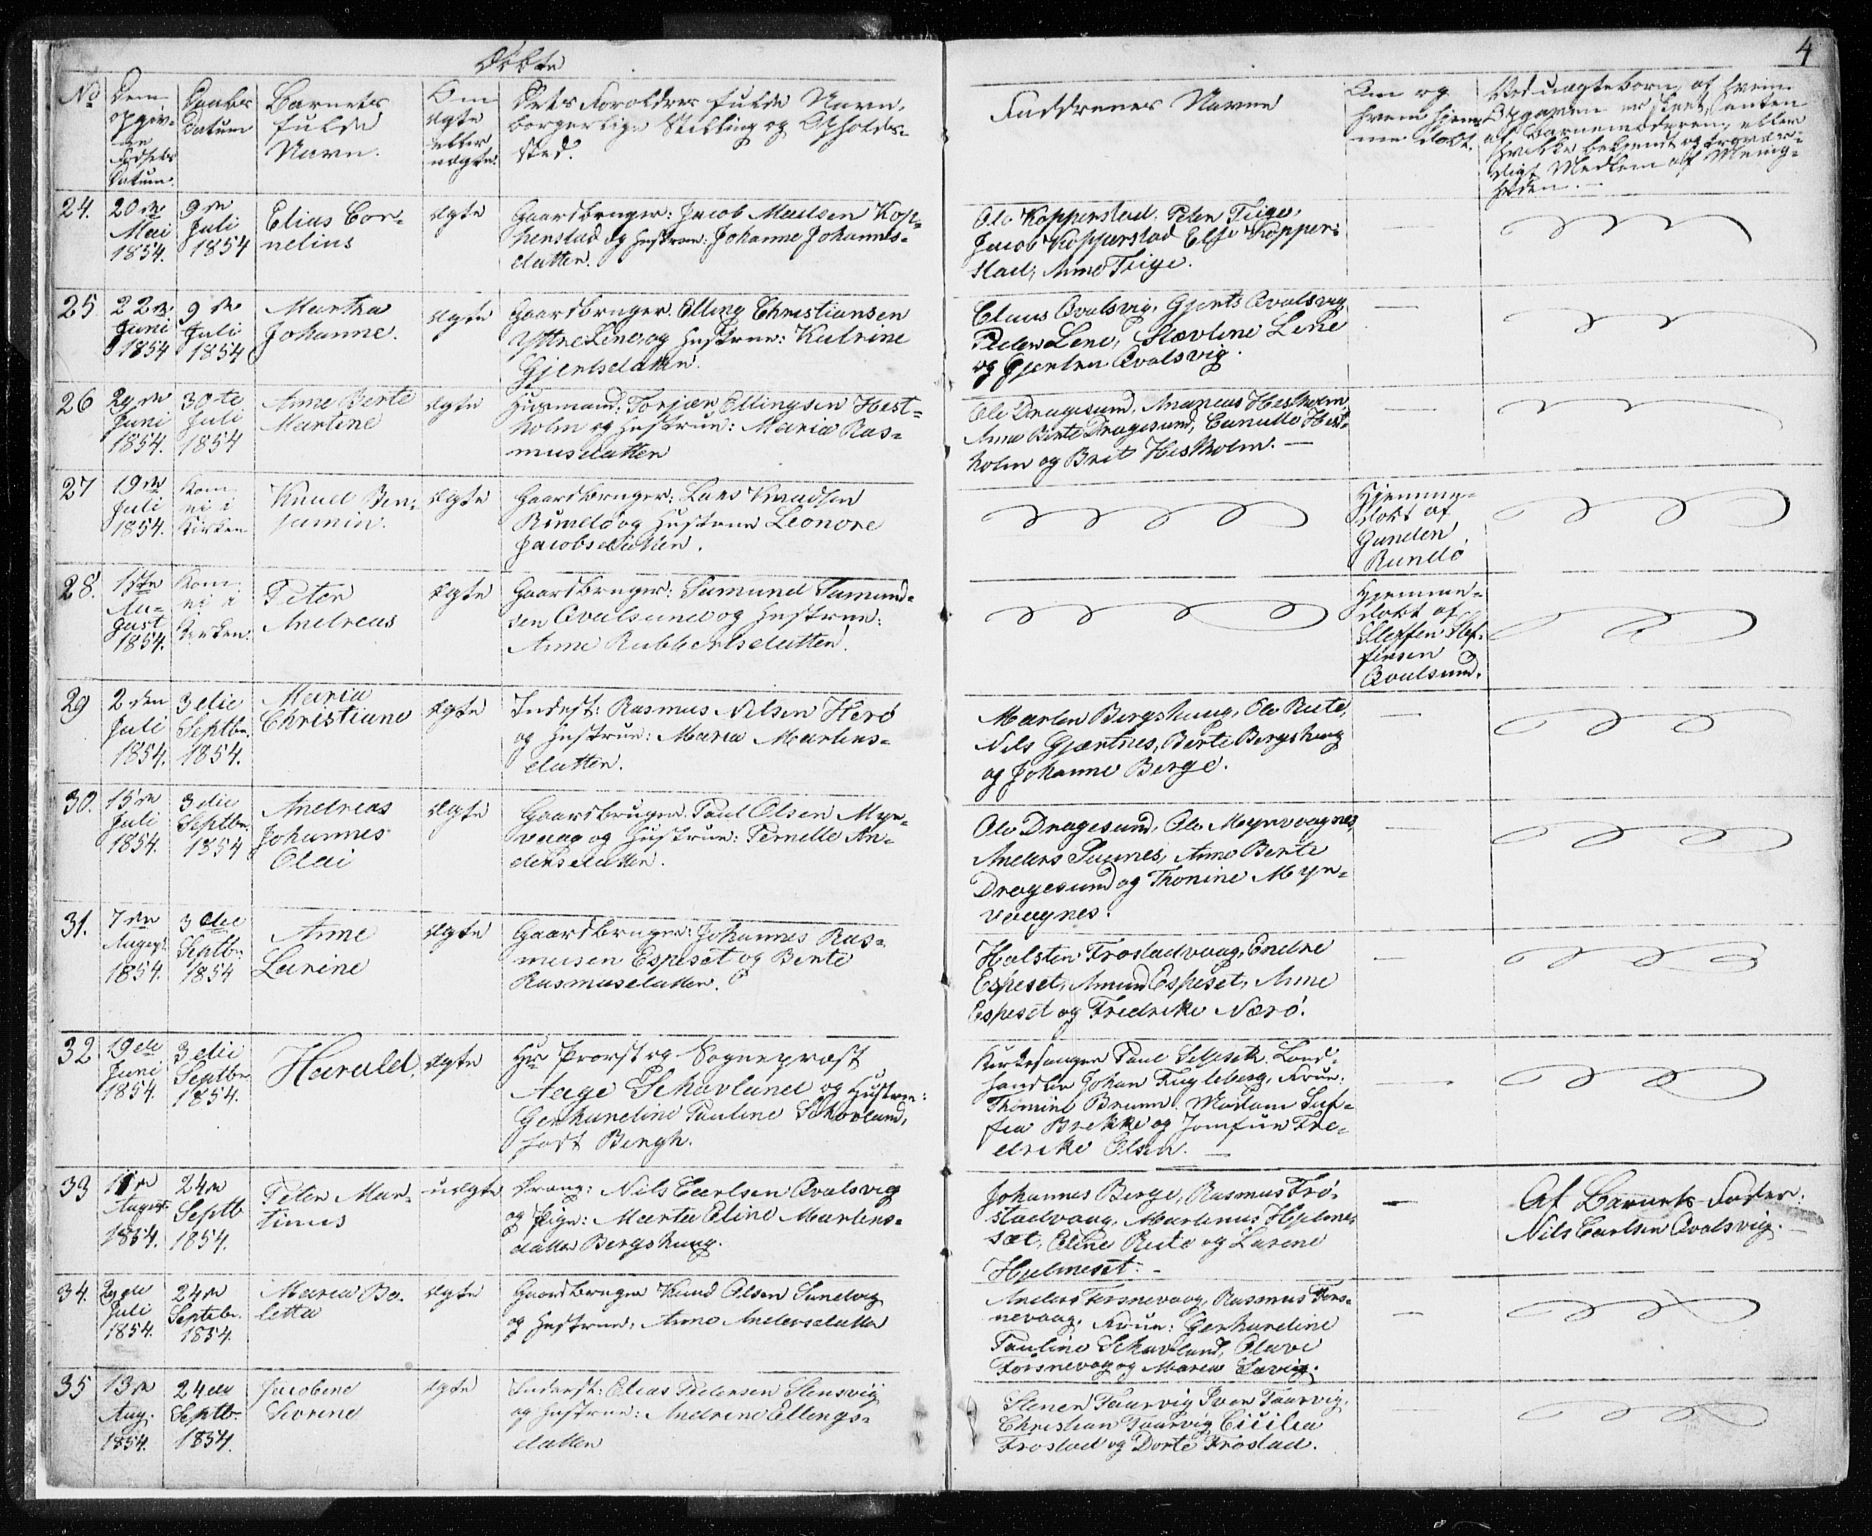 4
Døbte
No
Den
opgiv-
ne
Fødsels
Datum.
Daabs
Datum
Barnets
fulde
Navn.
Om
ægte
eller
uægte.
Dets Forældres fulde Navn,
borgerlige Stilling og Opholds-
sted.
Faddrenes Navne
Om og
hvem hjem-
me døbt.
Ved uægte Børn, af hvem
Opgaven er skeet, enten
af Barnemoderen, eller
hvilke bekjendt og trovær-
digt Medlem af Menig-
heden.
24.
20de
Mai
1854.
9de
Juli
1854
Elias Cor-
nelius
ægte
Gaardbruger: Jacob Madsen Kop-
penstad og Hustrue: Johanne Johannes-
datter.
Ole Kopperstad, Peter Teige,
Jacob Kopperstad Else Kopper-
stad, Anne Teige.
25
22de
Juni
1854
9de
Juli
1854
Martha
Johanne.
ægte
Gaardbruger. Elling Christiansen
Yttre Line, og Hustrue: Katrine
Gjertsdatter.
Claus Qvalsvig, Gjerts Qvalsvig
Peder Line, Stævline Line
og Gjertru Qvalsvig.
26
29de
Juni
1854.
30te
Juli
1854
Anne Berte
Martine
ægte
Huusmand: Torjær Ellingsen Hest-
holm og Hustrue: Maria Ras-
musdatter
Ole Dragesund, Ananias Hestholm,
Anne Berte Dragesund, Gunille Hest-
holm og Brit Hestholm. —
27
19de
Juli
1854.
Kom
ei i
Kirken
Knud Ben-
jamin.
ægte
Gaardbruger: Lars Knudsen
Rundø og Hustrue Leonore
Jacobsdatter.
Hjemme-
døbt af
Gunden
Rundø
28.
15de
Au-
gust
1854.
Kom
ei i
Kirken.
Peter
Andreas
ægte
Gaardbruger: Samund Samund-
sen Qvalsund og Hustrue:
Anne Rubbertsdatter.
Hjemme-
døbt af
Steffen Stef-
fensen
Qvalsund.
29
2den
Juli
1854.
3die
Septbr.
1854.
Maria
Christiane
ægte
Inderst: Rasmus Nilsen Herø
og Hustrue: Maria Martens-
datter.
Marten Bergshaug, Ole Ruite,
Nils Gjertnes, Berte Bergshaug
og Johanne Berge.
30.
15de
Juli
1854.
3die
Septbr.
1854
Andreas
Johannes
Olai
ægte
Gaardbruger. Paul Olsen Myr-
vaag og Hustrue: Pernelle An-
dersdatter.
Ole Dragesund, Ole Myrvaagnes,
Anders Saunes, Anne Berte
Dragesund og Thonine Myr-
vaagnes.
31.
7de
August
1854.
3die
Septb:
1854
Anne
Larine
ægte
Gaardbruger: Johannes Ras-
musen Espeset og Berte
Rasmusdatter.
Halsten Frøstadvaag, Endre
Espeset, Amund Espeset, Anne
Espeset og Fredrikke Nærø.
32
19de
Juni
1854.
3die
Septbr
1854.
Harald.
ægte
Hr. Provst og Sognepræst
Aage Schavland og Hustrue:
Gerhardine Pauline Schavland,
født Bergh.
Kirkesanger Paul Selseth, Land-
handler Johan Fugleberg, Frue:
Thomine Brunn, Madam Suf-
fia Brekke og Jomfrue Fre-
drikke Olsen. —
33
11te
August.
1854.
24de
Septb
1854.
Peter Mar-
tinus
uægte
Dreng: Nils Carlsen Qvalsvig
og Pige: Marta Eline Martens-
datter Bergshaug.
Johannes Berge, Rasmus Frø-
stadvaag, Martinus Hjelme-
sæt, Eline Ruite og Larine
Hjelmeset. —
Af Barnets Fader.
Nils Carlsen Qvalsvig. —
34.
29de
Juli
1854.
24de
Septebr.
1854.
Maria Bo-
letta
ægte
Gaardbruger Knud Olsen Sandvig
og Hustrue: Anne Andersdatter
Anders Torsnevaag, Rasmus Tors-
nevaag, Frue: Gerhardine
Pauline Schavland, Olave
Torsnevaag og Maren Savig.
35
13de
Aug.
1854.
24de
Septbr.
1854.
Jacobine
Severine
ægte
Inderst: Elias Pedersen Stensvig
og Hustrue: Andrine Ellings-
datter
Stener Taurvig Iver Taurvig,
Christian Taurvig Cicilia
Frøstad og Dorte Frøstad.